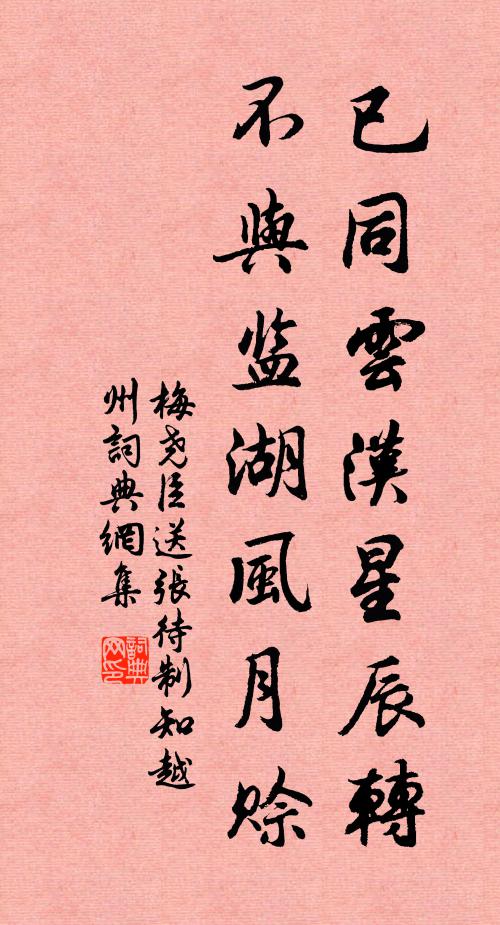 已同雲漢星辰轉
不與监湖風月賒
梅尧臣送張待制知越
州詞典網集
詞典网印